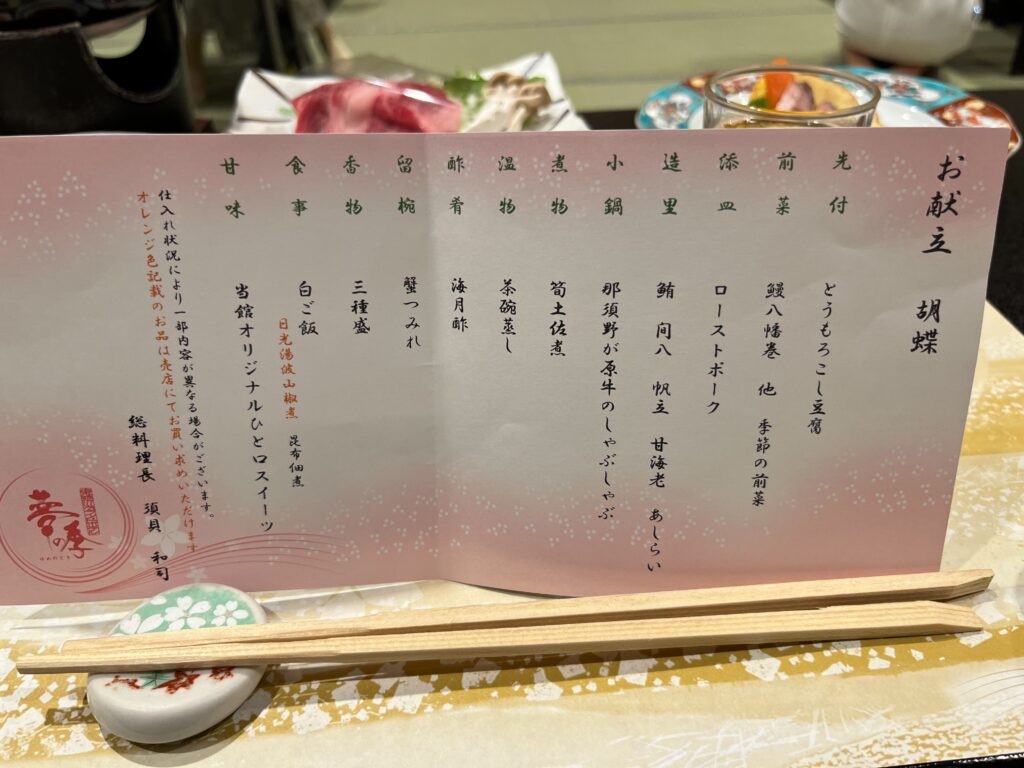 お献立 胡蝶
先付 とうもろこし豆腐
前菜 鰻八幡巻 他 季節の前菜
添皿 ローストポーク
造里 鮪 間八 帆立 甘海老 あしらい
小鍋 那須野が原牛のしゃぶしゃぶ
煮物 筍土佐煮
温物 茶碗蒸し
酢肴 海月酢
留椀 蟹つみれ
香物 三種盛
食事 白ご飯
日光湯波山椒煮 昆布佃煮
甘味 当館オリジナルひと口スイーツ
仕入れ状況により一部内容が異なる場合がございます。
オレンジ色記載のお品は売店にてお買い求めいただけます
総料理長 須貝 和司
夢の季
ゆめのとき